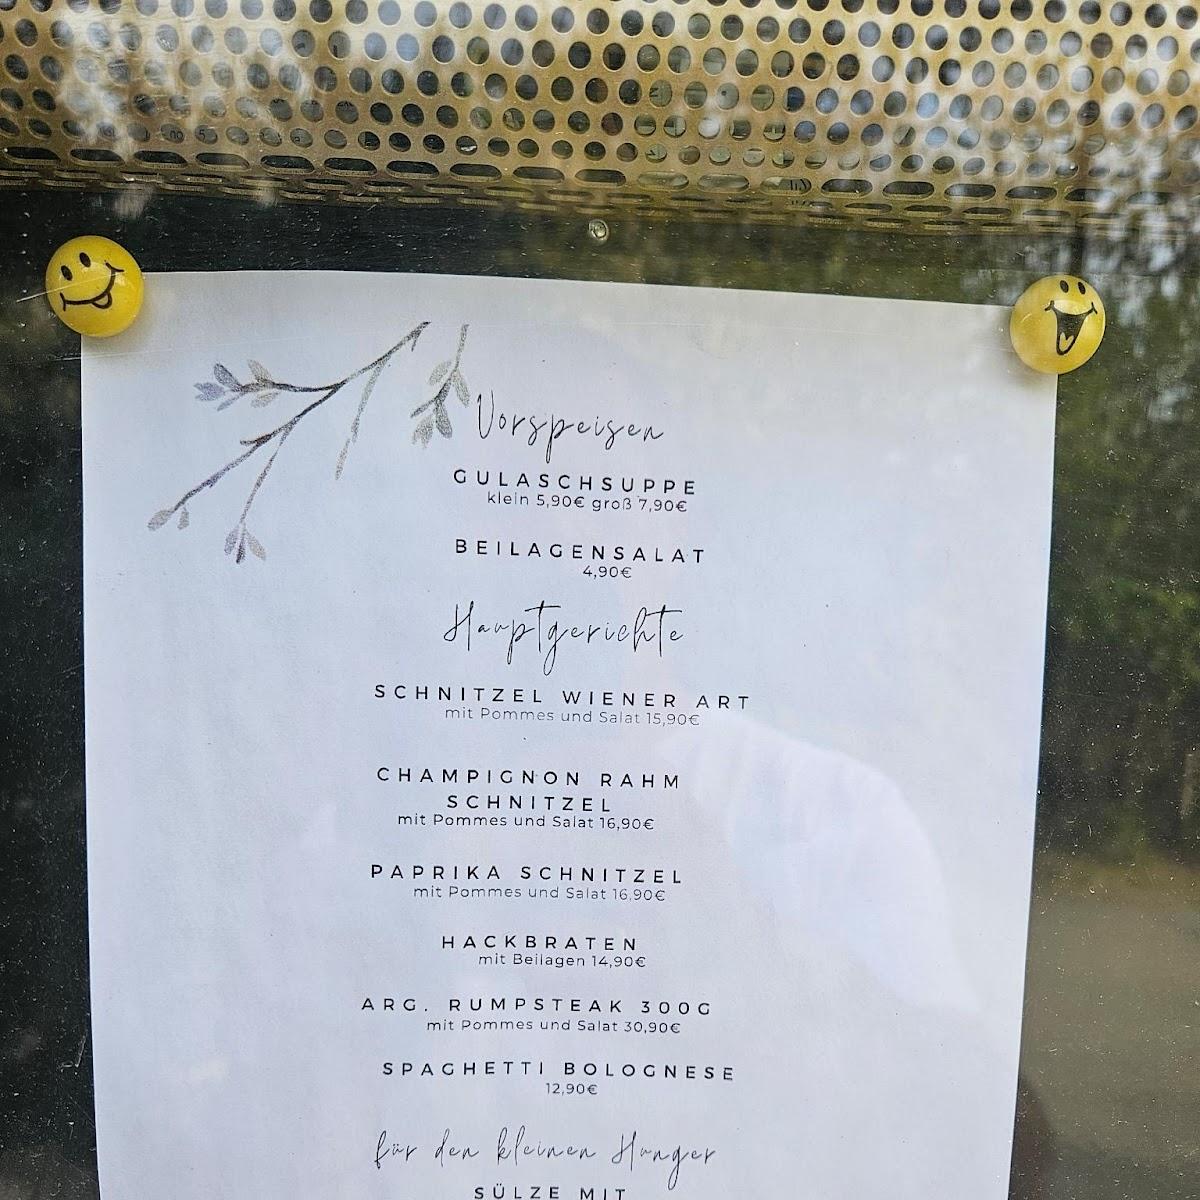 Vorspeisen
GULASCHSUPPE
klein 5,90€ groß 7,90€
BEILAGENSALAT
4,90€
Hauptgerichte
SCHNITZEL WIENER ART
mit Pommes und Salat 15,90€
CHAMPIGNON RAHM
SCHNITZEL
mit Pommes und Salat 16,90€
PAPRIKA SCHNITZEL
mit Pommes und Salat 16,90€
HACKBRATEN
mit Beilagen 14,90€
ARG. RUMPSTEAK 300G
mit Pommes und Salat 30,90€
SPAGHETTI BOLOGNESE
12,90€
für den kleinen Hunger
SÜLZE MIT